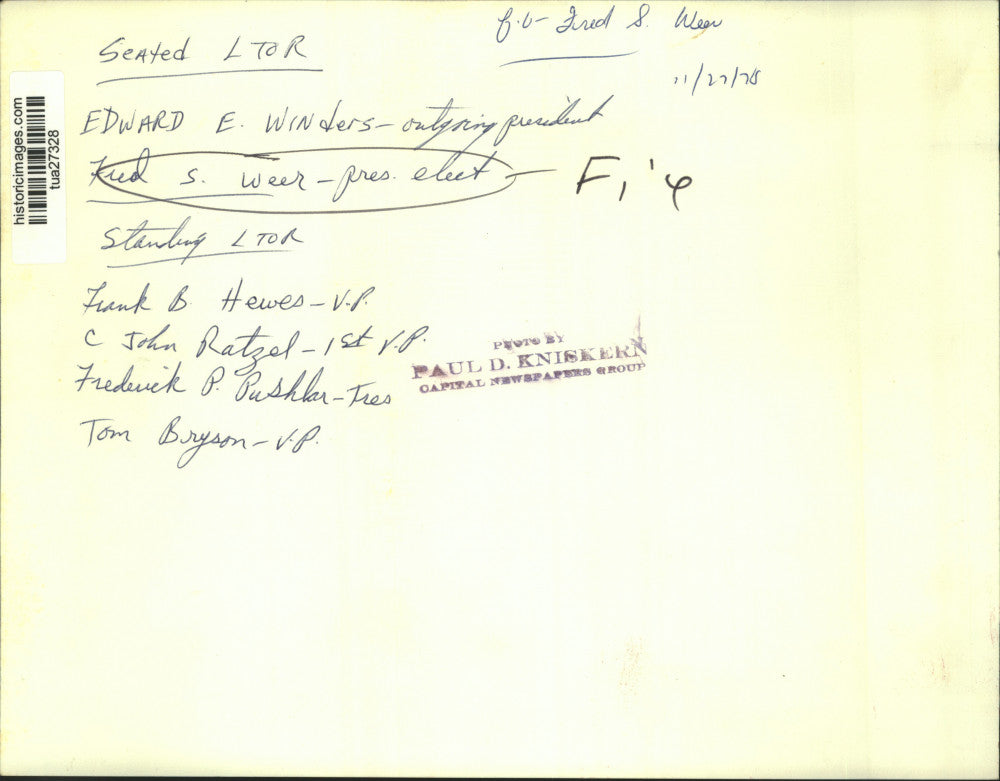 Fred S. Weer
11/27/78
Seated L TO R
EDWARD E. WINders - outgoing president
Fred S. Weer - pres. elect -
Standing L TO R
Frank B. Hewes - V.P.
C John Ratzel - 1st V.P.
Frederick P. Pushkar - Tres
Tom Bryson - V.P.
PHOTO BY
PAUL D. KNISKERN
CAPITAL NEWSPAPERS GROUP
historicimages.com
tua27328